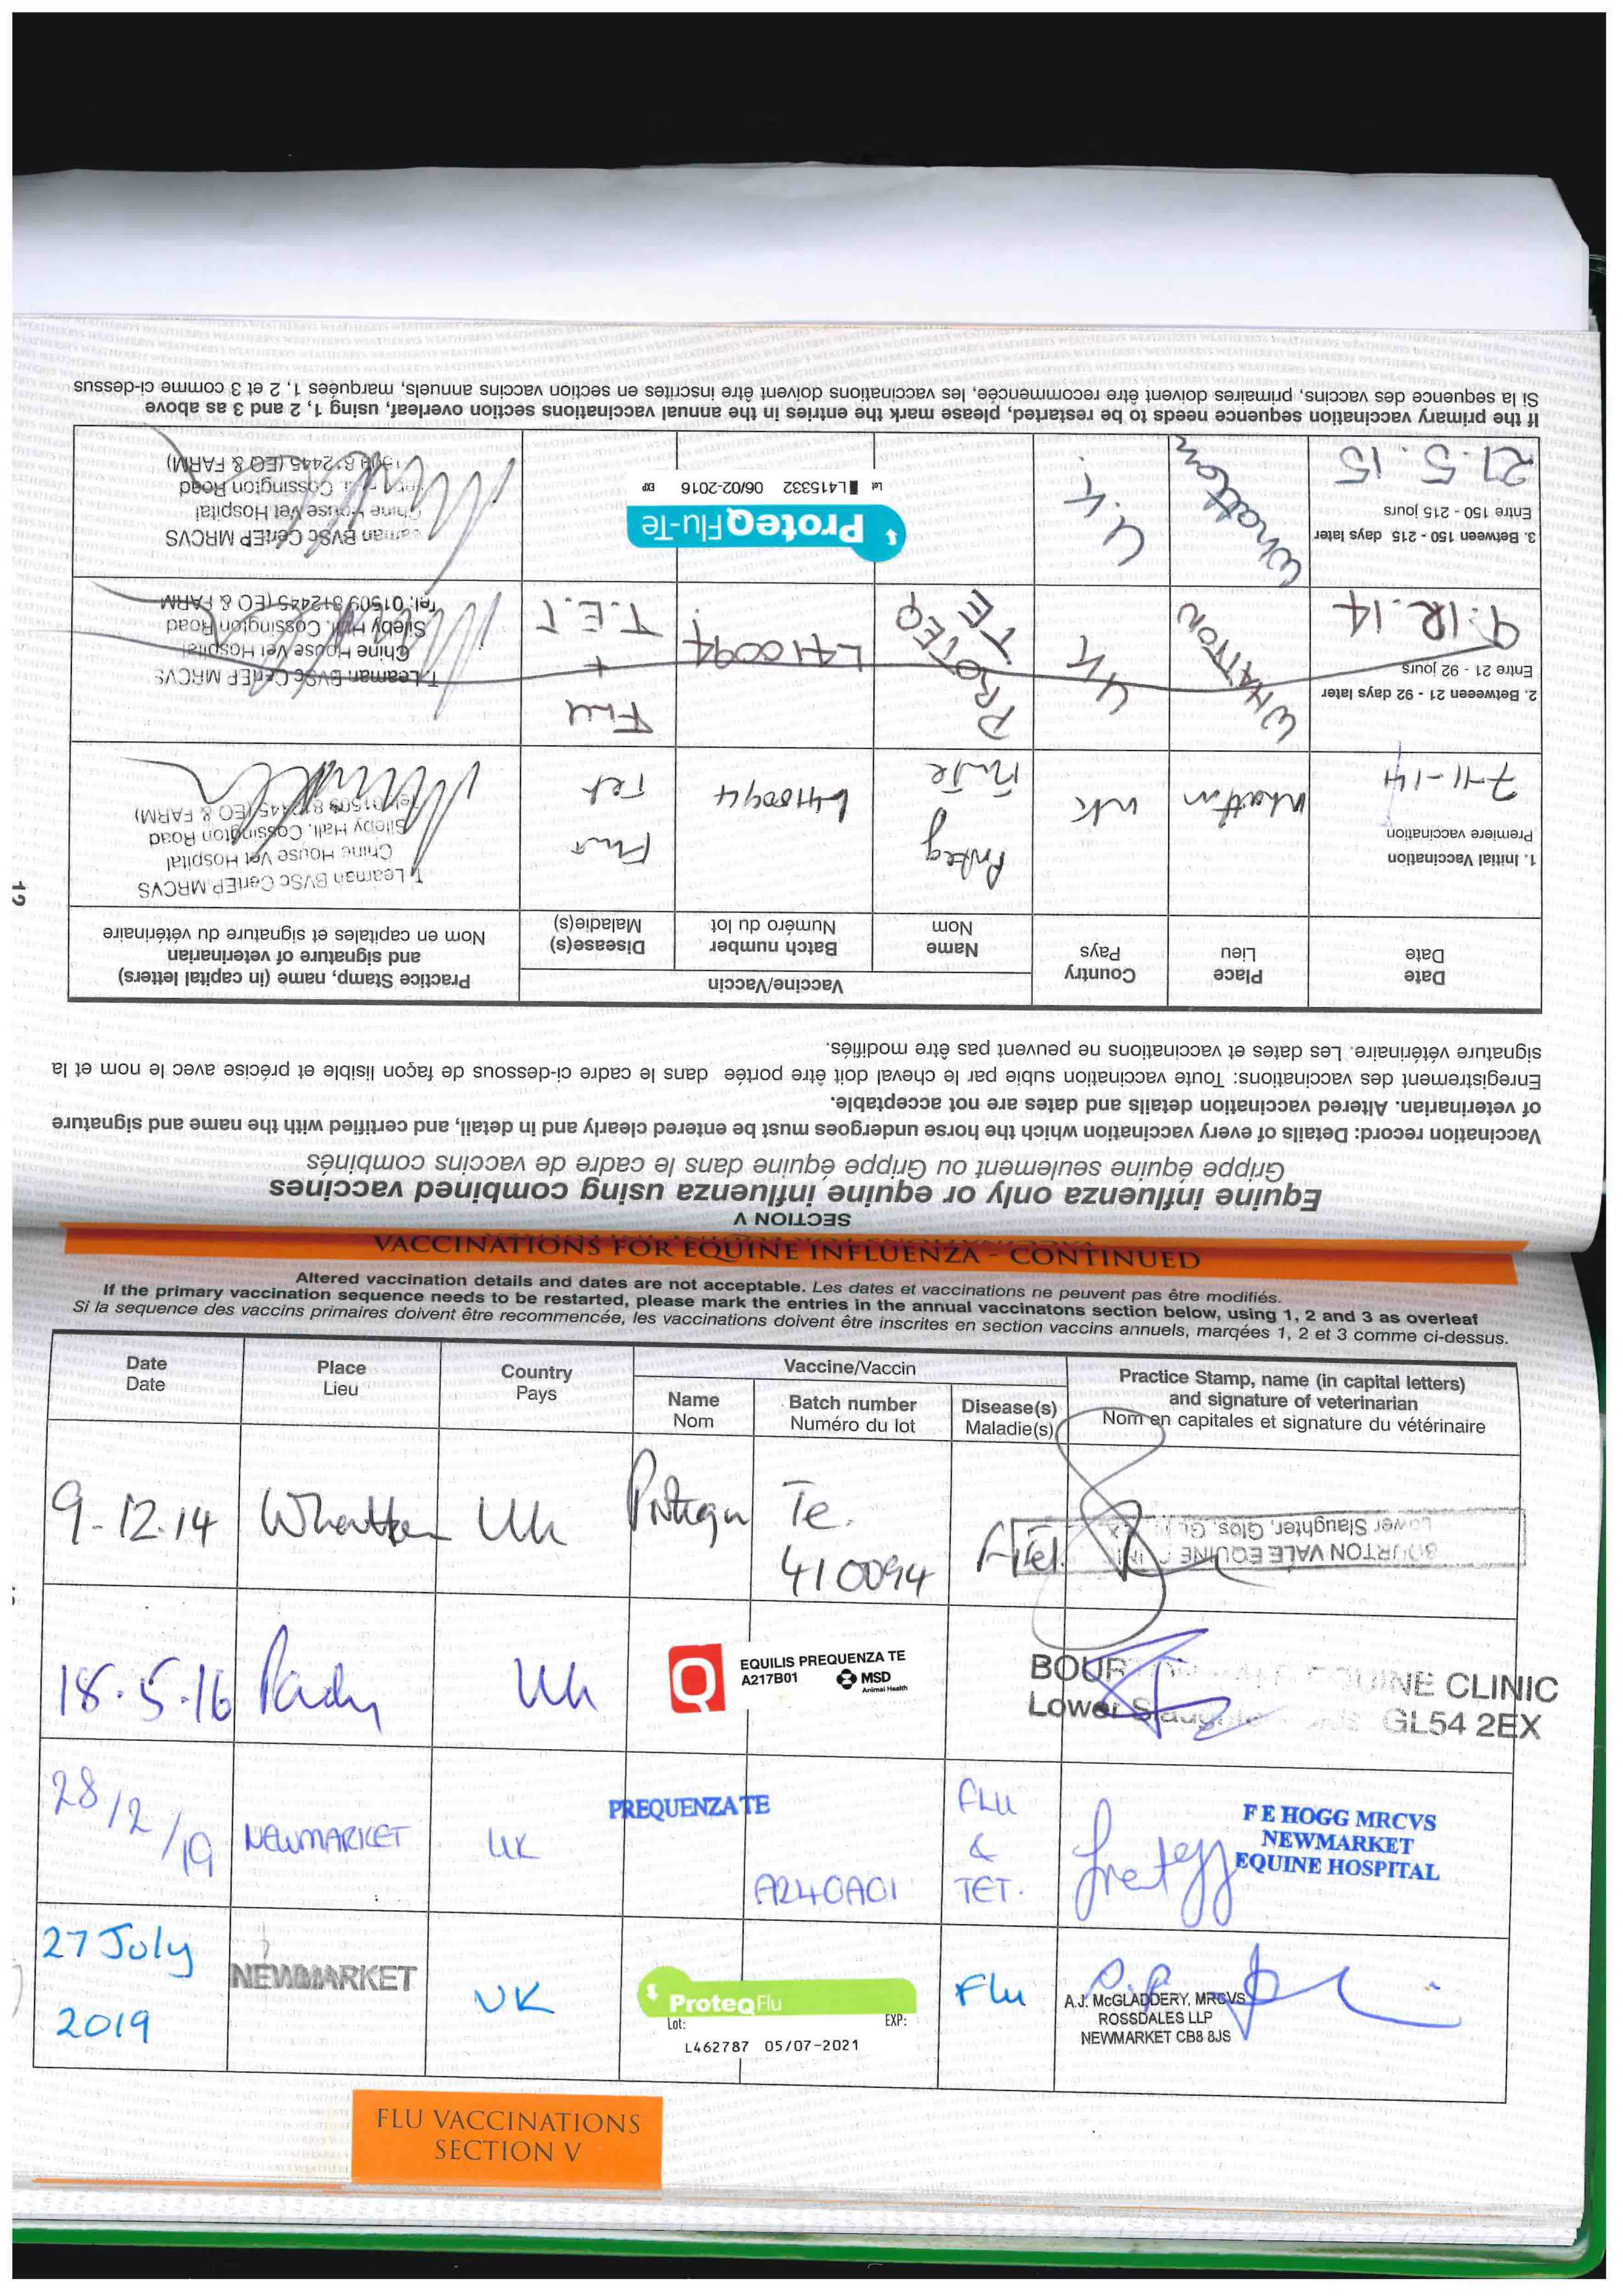 SECTION V
Equine influenza only or equine influenza using combined vaccines
Grippe équine seulement ou Grippe équine dans le cadre de vaccins combinés
Vaccination record: Details of every vaccination which the horse undergoes must be entered clearly and in detail, and certified with the name and signature
of veterinarian. Altered vaccination details and dates are not acceptable.
Enregistrement des vaccinations: Toute vaccination subie par le cheval doit être portée dans le cadre ci-dessous de façon lisible et précise avec le nom et la
signature vétérinaire. Les dates et vaccinations ne peuvent pas être modifiés.
Date
Date
Place
Lieu
Country
Pays
Vaccine/Vaccin
Name
Nom
Batch number
Numéro du lot
Disease(s)
Maladie(s)
Practice Stamp, name (in capital letters)
and signature of veterinarian
Nom en capitales et signature du vétérinaire
1. Initial Vaccination
Premiere vaccination
7-11-14
Whatton
UK
Proteq
Flu Te
L410094
Flu
Tet
T Leaman BVSc CertEP MRCVS
Chine House Vet Hospital
Sileby Hall, Cossington Road
Tel: 01509 812445 (EQ & FARM)
2. Betweeen 21 - 92 days later
Entre 21 - 92 jours
9.12.14
WHATTON
UK
PROTEQ
TE
L410094
Flu
+
T.E.T
T Leaman BVSc CertEP MRCVS
Chine House Vet Hospital
Sileby Hall, Cossington Road
Tel: 01509 812445 (EQ & FARM
3. Between 150 - 215 days later
Entre 150 - 215 jours
21.5.15
Whatton
U.K.
ProteqFlu-Te
Lot L415332 06/02-2016 EXP
Leaman BVSc CertEP MRCVS
Chine House Vet Hospital
Cossington Road
812445 (EQ & FARM)
If the primary vaccination sequence needs to be restarted, please mark the entries in the annual vaccinations section overleaf, using 1, 2 and 3 as above
Si la sequence des vaccins, primaires doivent être recommencée, les vaccinations doivent être inscrites en section vaccins annuels, marquées 1, 2 et 3 comme ci-dessus
WEATHERBYS
19
VACCINATIONS FOR EQUINE INFLUENZA - CONTINUED
Altered vaccination details and dates are not acceptable. Les dates et vaccinations ne peuvent pas être modifiés.
If the primary vaccination sequence needs to be restarted, please mark the entries in the annual vaccinatons section below, using 1, 2 and 3 as overleaf
Si la sequence des vaccins primaires doivent être recommencée, les vaccinations doivent être inscrites en section vaccins annuels, marqées 1, 2 et 3 comme ci-dessus.
Date
Date
Place
Lieu
Country
Pays
Vaccine/Vaccin
Name
Nom
Batch number
Numéro du lot
Disease(s)
Maladie(s)
Practice Stamp, name (in capital letters)
and signature of veterinarian
Nom en capitales et signature du vétérinaire
9.12.14
Whatton
Uk
Te.
410094
BOURTON VALE EQUINE CLINIC
Lower Slaughter, Glos, GL54 2EX
18.5.16
Uk
EQUILIS PREQUENZA TE
A217B01
MSD
Animal Health
EQUINE CLINIC
Lower Slaughter
GL54 2EX
28/12/19
NEWMARKET
UK
PREQUENZA TE
A240A01
FLU
&
TET.
F E HOGG MRCVS
NEWMARKET
EQUINE HOSPITAL
27 July
2019
NEWMARKET
UK
ProteqFlu
Lot: EXP:
L462787 05/07-2021
Flu
A.J. McGLADDERY, MRCVS
ROSSDALES LLP
NEWMARKET CB8 8JS
FLU VACCINATIONS
SECTION V